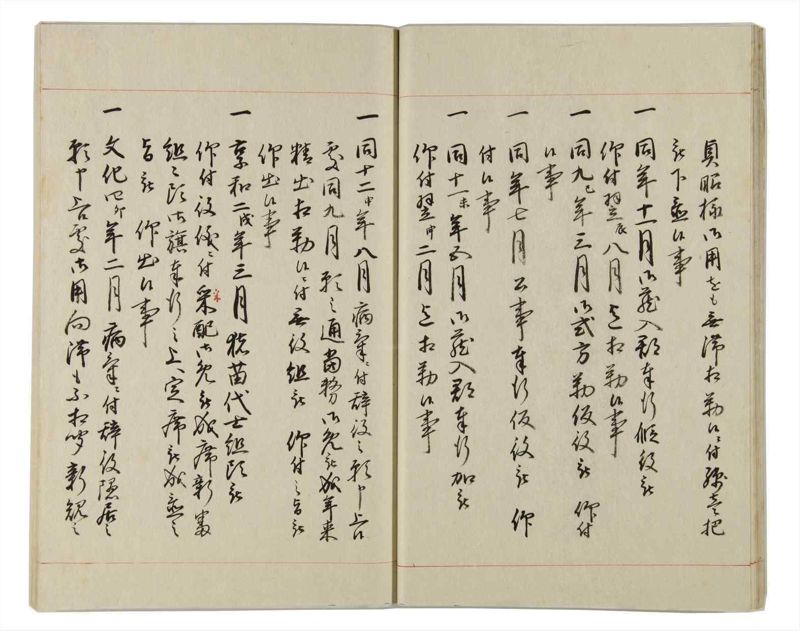 貞昭極御用をも無滞相勤候ニ付
被下置候事
一 同年十一月御蔵入郡奉行仮役被
仰付翌辰八月迄相勤候事
一 同九巳年三月御式方勤仮役被 仰付
候事
一 同年七月公事奉行仮役被 仰
付候事
一 同十一未年五月御蔵入郡奉行加被
仰付翌申二月迄相勤候事
一 同十二申年八月病気ニ付辞役之願申上候
処同九月願之通当務御免被成年来
精出相勤候ニ付無役組被 仰付之旨被
仰出候事
一 享和二戌年三月猪苗代士組頭被
仰付役儀ニ付采配御免被成席
組之頭御旗奉行之上定席被成置之
旨被 仰出候事
一 文化四卯年二月病気ニ付辞役隠居之
願申上候処御用向滞も不相成